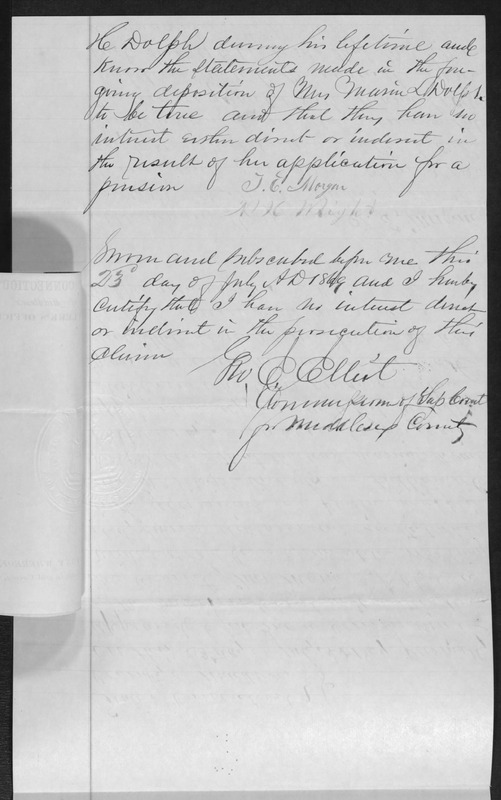 H Dolph during his lifetime and
know the statements made in the fore-
going deposition of Mrs Maria L Dolph
to be true and that they have no
interest either direct or indirect in
the result of her application for a
pension T. E. Morgan
Wright
Sworn and subscribed before me this
23d day of July AD 1869 and I hereby
certify that I have no interest direct
or indirect in the prosecution of this
claim
Geo E Elliot
Commissioner of Sup Court
for Middlesex County